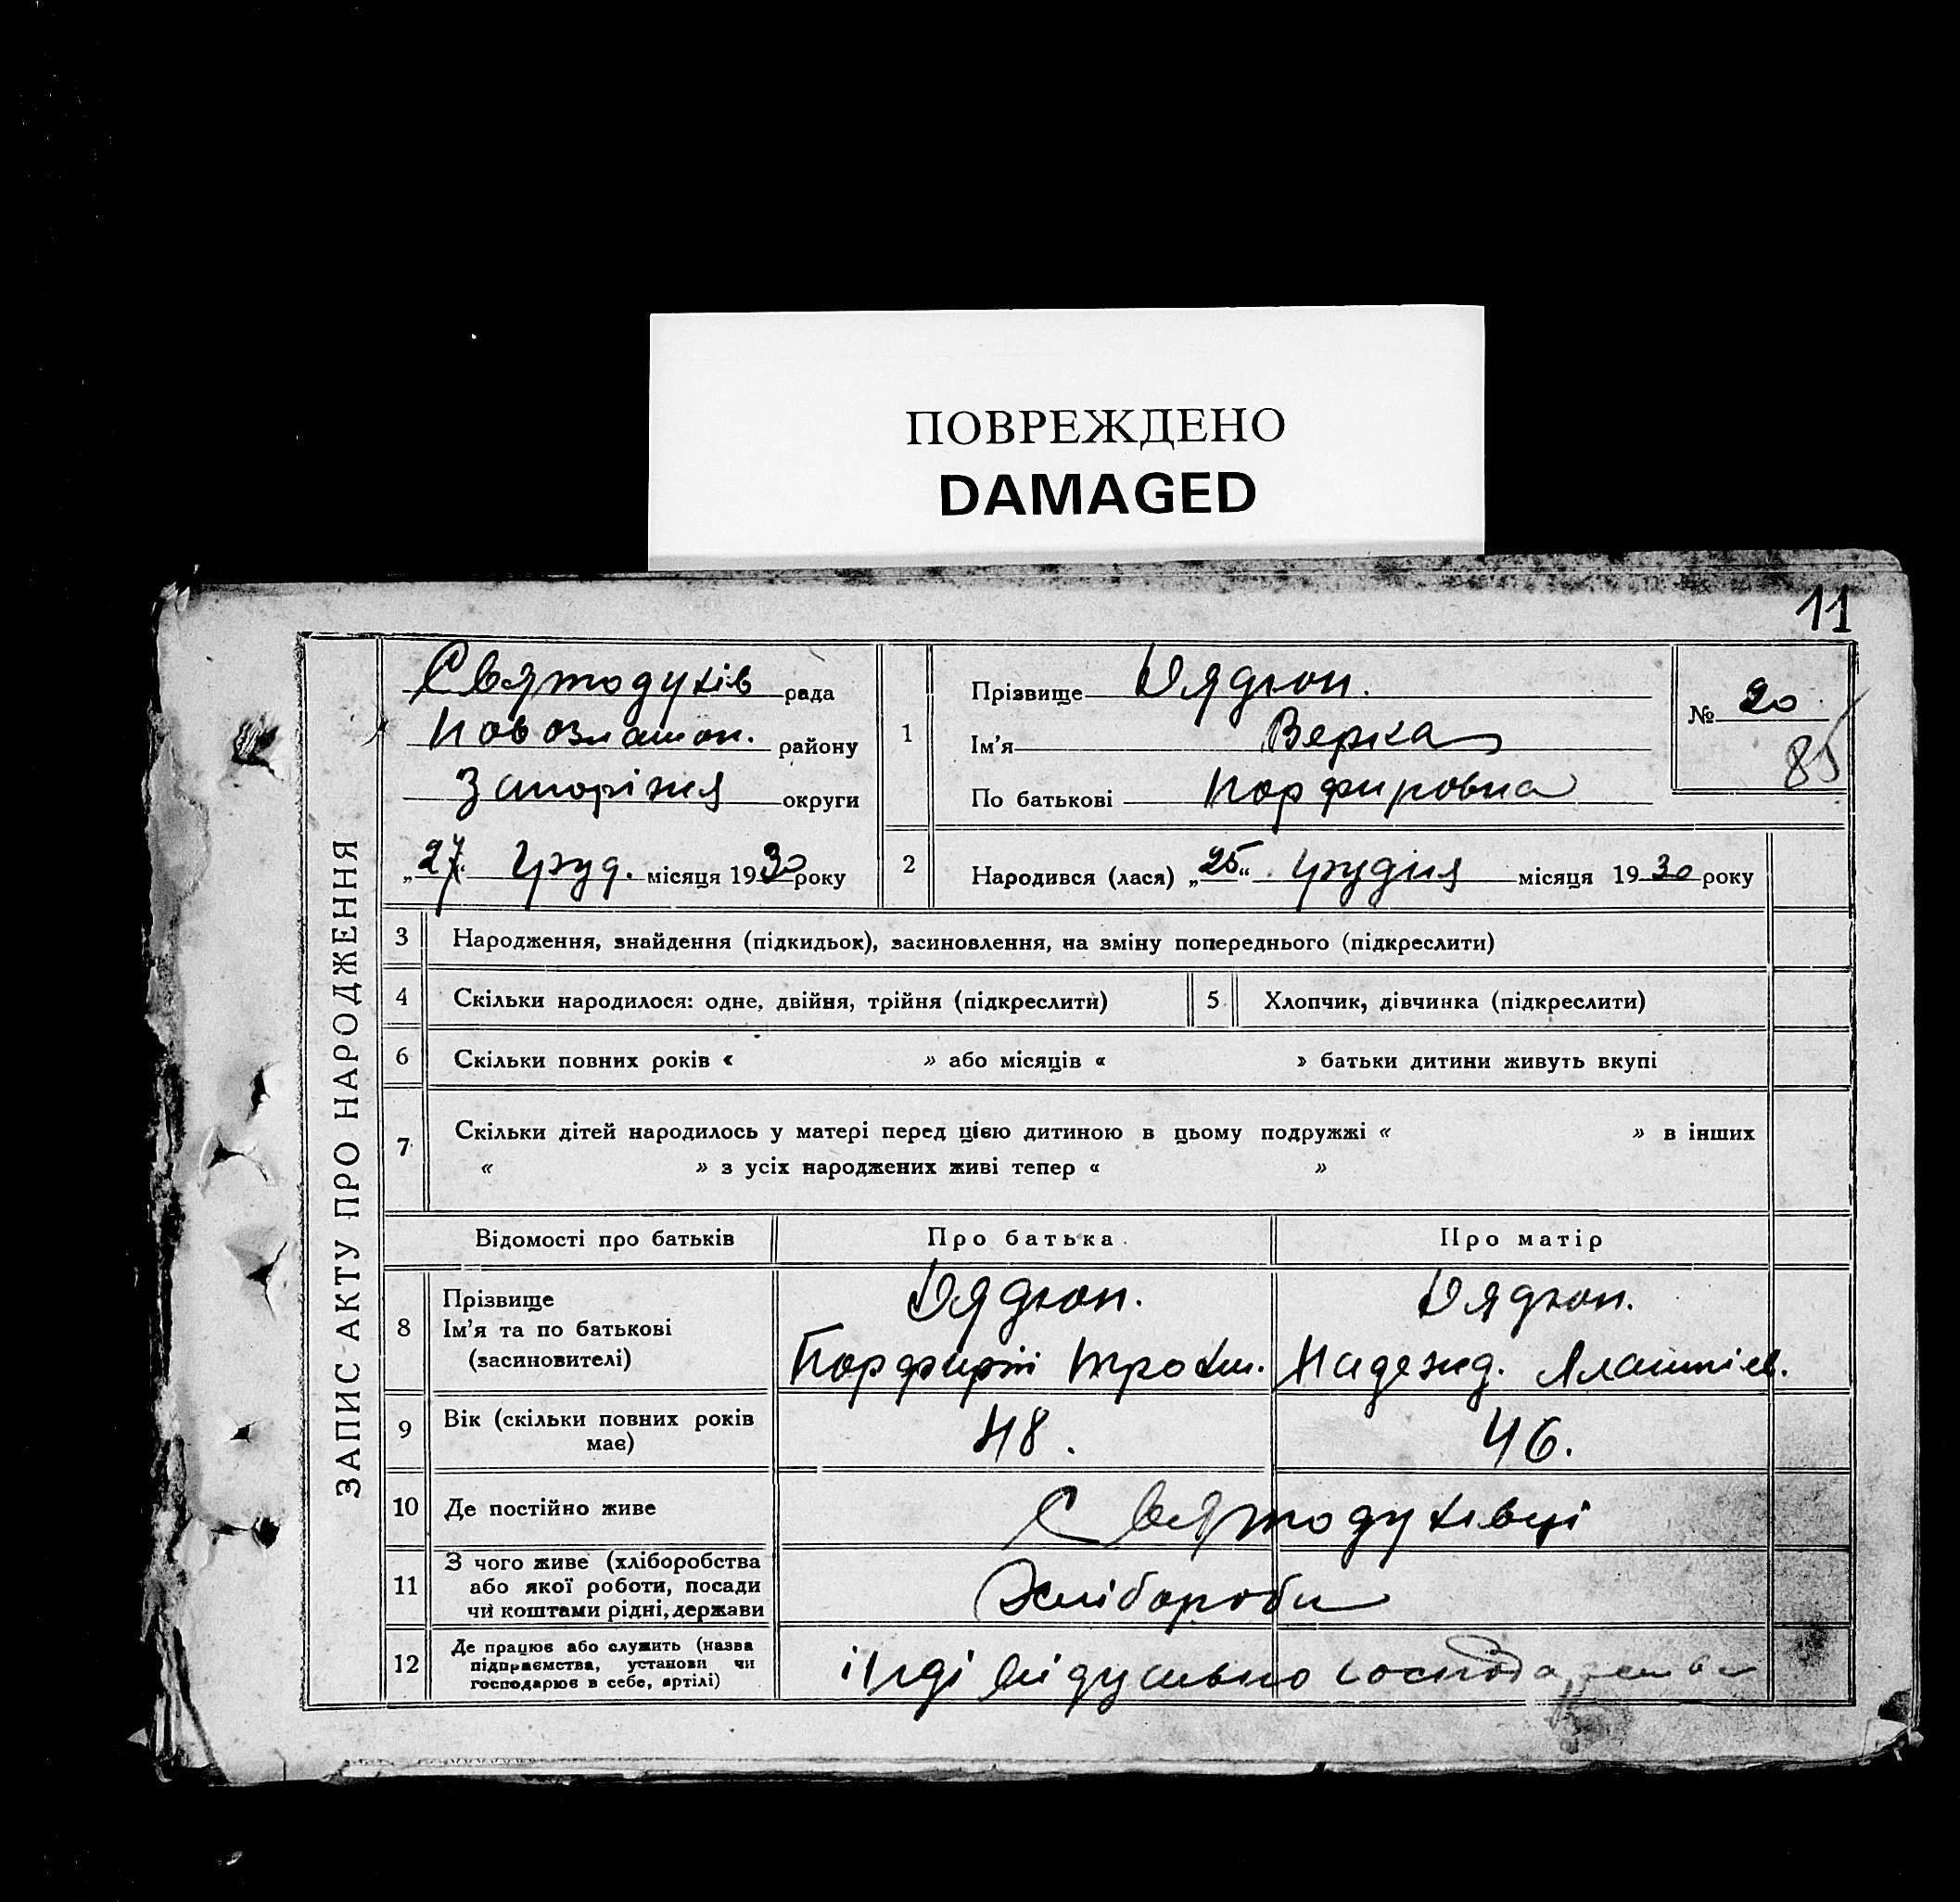 ПОВРЕЖДЕНО
DAMAGED
11
ЗАПИС АКТУ ПРО НАРОДЖЕННЯ
Святодухів рада
Новозлатоп. району
Запоріжя округи
„27“ Груд. місяця 1930 року
1
Прізвище Дядюн.
Ім’я Верка
По батькові Порфировна
№ 20
85
2 Народився (лася) „25“ грудня місяця 1930 року
3 Народження, знайдення (підкидьок), засиновлення, на зміну попереднього (підкреслити)
4 Скільки народилося: одне, двійня, трійня (підкреслити) 5 Хлопчик, дівчинка (підкреслити)
6 Скільки повних років « » або місяців « » батьки дитини живуть вкупі
7 Скільки дітей народилось у матері перед цією дитиною в цьому подружжі « » в інших
« » з усіх народжених живі тепер « »
Відомості про батьків Про батька Про матір
8 Прізвище
Ім’я та по батькові
(засиновителі)
Дядюн. Дядюн.
Порфирій Надежд.
9 Вік (скільки повних років
має) 48. 46.
10 Де постійно живе Святодухівці
11 З чого живе (хліборобства
або якої роботи, посади
чи коштами рідні, держави
Хлібороби
12 Де працює або служить (назва
підприємства, установи чи
господарює в себе, артілі)